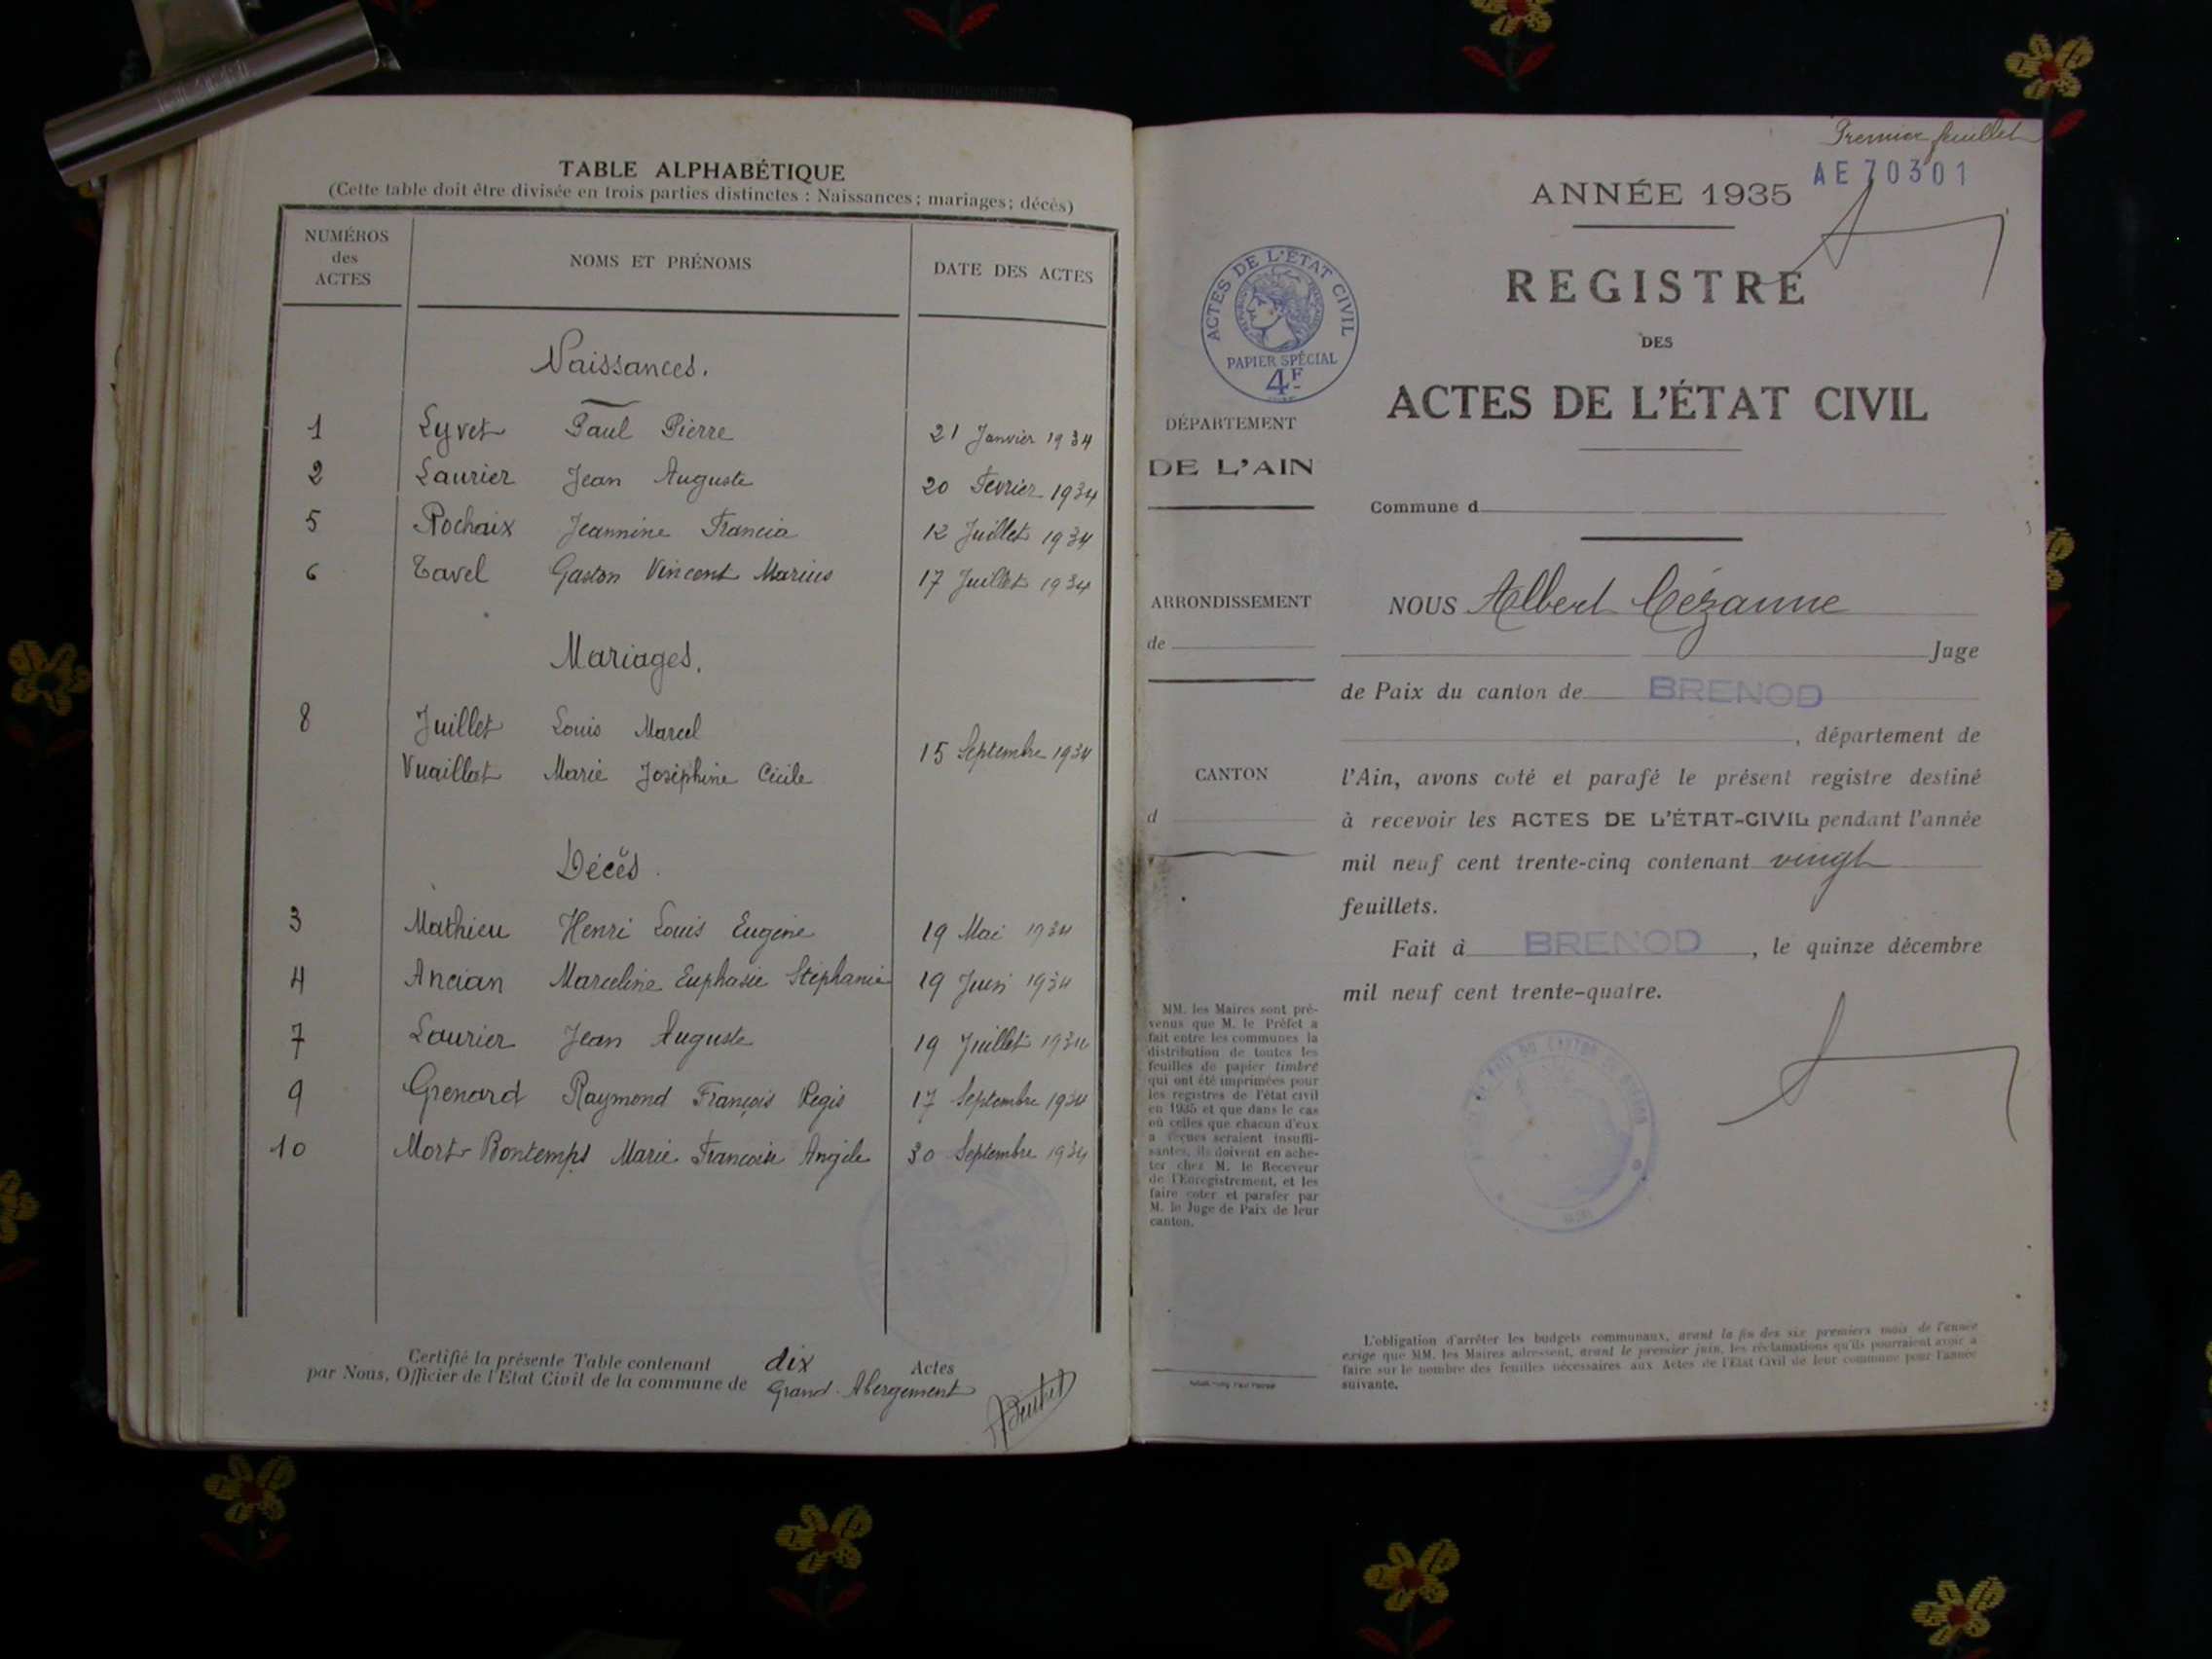 TABLE ALPHABÉTIQUE
(Cette table doit être divisée en trois parties distinctes : Naissances; mariages; décès)
NUMÉROS des ACTES
NOMS ET PRÉNOMS
DATE DES ACTES
Naissances.
1 Lyvet Paul Pierre 21 Janvier 1934
2 Laurier Jean Auguste 20 Fevrier 1934
5 Rochaix Jeannine Francia 12 Juillet 1934
6 Tavel Gaston Vincent Marius 17 Juillet 1934
Mariages.
8 Juillet Louis Marcel
15 Septembre 1934
Vuaillat Marie Joséphine Cécile
Décès
3 Mathieu Henri Louis Eugène 19 Mai 1934
4 Ancian Marceline Euphasie Stéphanie 19 Juin 1934
7 Laurier Jean Auguste 19 Juillet 1934
9 Grenard Raymond François Régis 17 Septembre 1934
10 Mort-Bontemps Marie Françoise Angèle 30 Septembre 1934
Certifié la présente Table contenant dix Actes
par Nous, Officier de l'Etat Civil de la commune de Grand-Abergement
Premier feuillet
AE 70301
ANNÉE 1935
REGISTRE
DES
ACTES DE L'ÉTAT CIVIL
ACTES DE L'ÉTAT CIVIL
PAPIER SPÉCIAL
4F
DÉPARTEMENT
DE L'AIN
ARRONDISSEMENT
de
CANTON
d
MM. les Maires sont pré-
venus que M. le Préfet a
fait entre les communes la
distribution de toutes les
feuilles de papier timbré
qui ont été imprimées pour
les registres de l'état civil
en 1935 et que dans le cas
où celles que chacun d'eux
a reçues seraient insuffi-
santes, ils doivent en ache-
ter chez M. le Receveur
de l'Enregistrement, et les
faire coter et parafer par
M. le Juge de Paix de leur
canton.
Commune d
NOUS Albert Cézanne
Juge
de Paix du canton de BRENOD
, département de
l'Ain, avons coté et parafé le présent registre destiné
à recevoir les ACTES DE L'ÉTAT-CIVIL pendant l'année
mil neuf cent trente-cinq contenant vingt
feuillets.
Fait à BRENOD, le quinze décembre
mil neuf cent trente-quatre.
L'obligation d'arrêter les budgets communaux, avant la fin des six premiers mois de l'année
exige que MM. les Maires adressent, avant le premier juin, les réclamations qu'ils pourraient avoir à
faire sur le nombre des feuilles nécessaires aux Actes de l'Etat Civil de leur commune pour l'année
suivante.